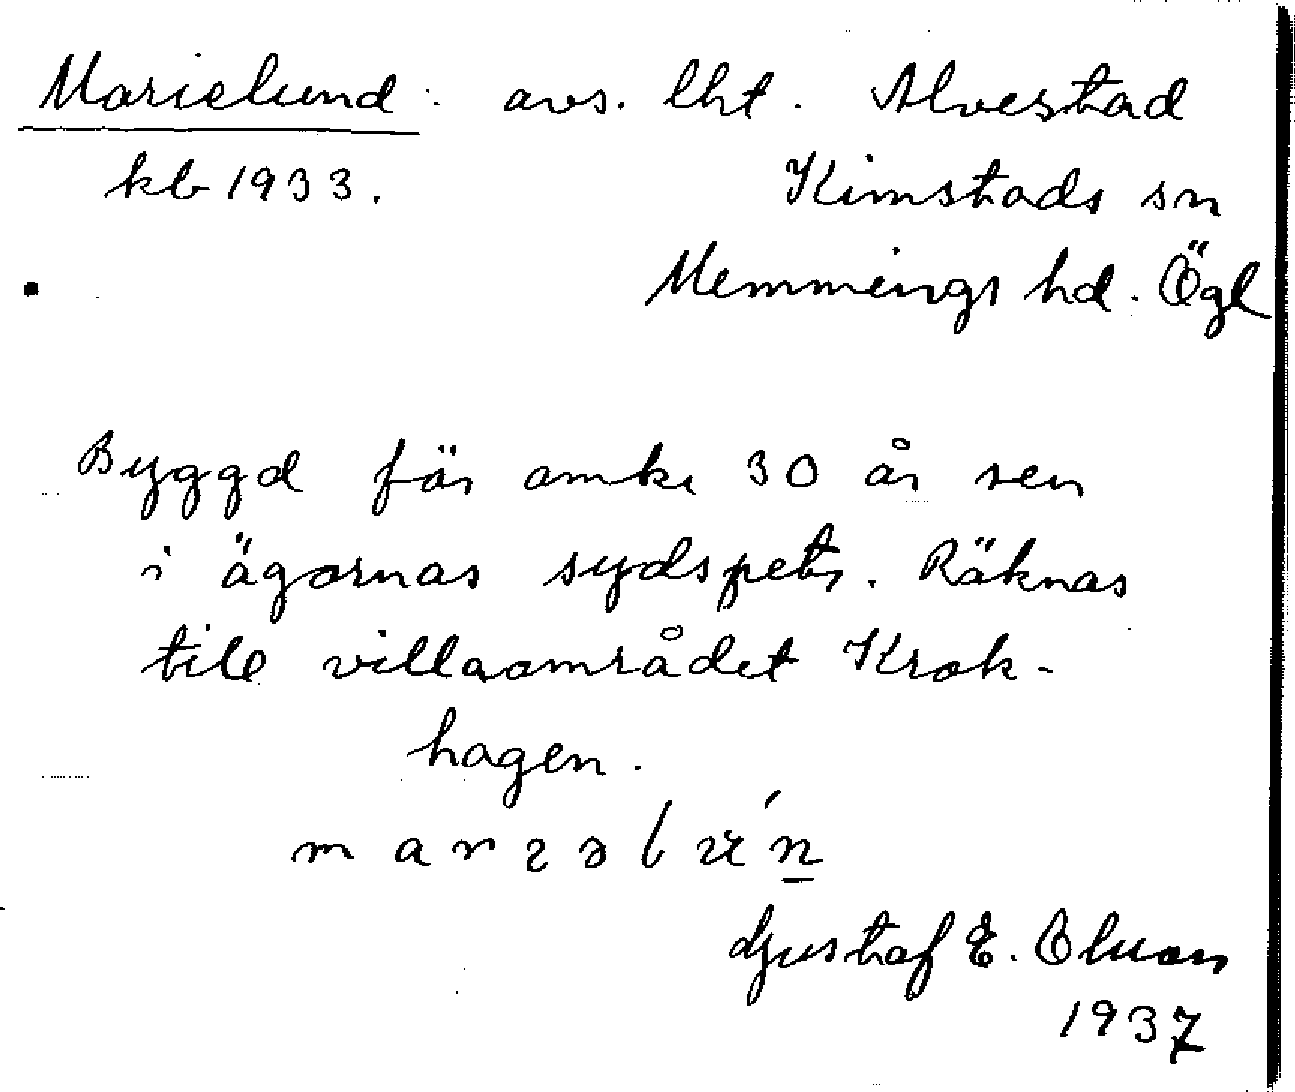 Marielund. avs. lht. Alvestad
kb 1933. Kimstads sn
Memmings hd. Ögl
Byggd för omkr 30 år sen
i ägornas sydspets. Räknas
till villaområdet Krok-
hagen.
Gustaf E. Olson
1937